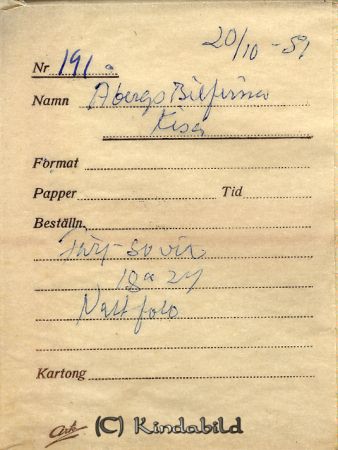 20/10 - 59
Nr 191a
Namn Åbergs Bilfirma
Kisa
Format
Papper Tid
Beställn.
Färj- so vir
18 a 24
Nattfoto
Kartong
Ark (C) Kindabild